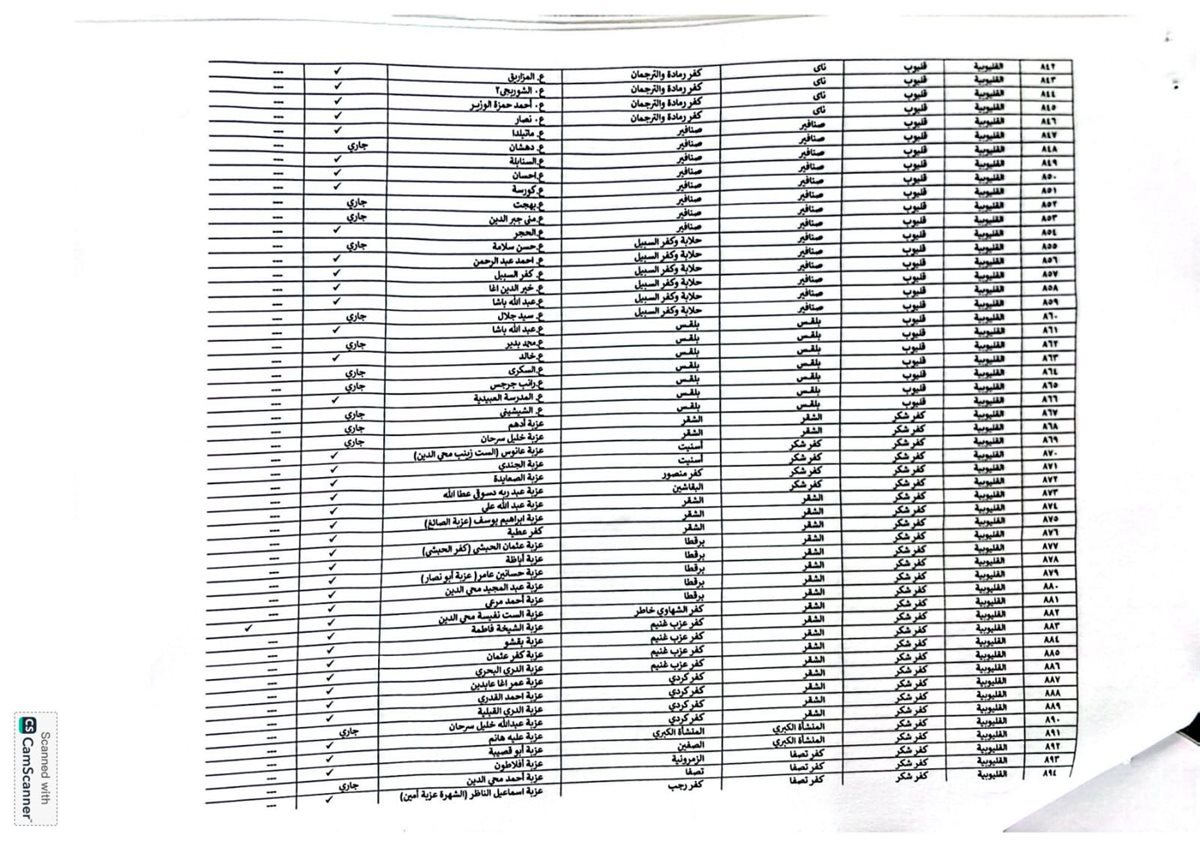 ٨٤٢ القليوبية قليوب ناى كفر رمادة والترجمان ع. المزاريق ✓ ---
٨٤٣ القليوبية قليوب ناى كفر رمادة والترجمان ع. الشوربجى٢ ✓ ---
٨٤٤ القليوبية قليوب ناى كفر رمادة والترجمان ع. أحمد حمزة الوزير ✓ ---
٨٤٥ القليوبية قليوب ناى كفر رمادة والترجمان ع. نصار ✓ ---
٨٤٦ القليوبية قليوب صنافير صنافير ع. ماتيلدا ✓ ---
٨٤٧ القليوبية قليوب صنافير صنافير ع. دهشان جاري ---
٨٤٨ القليوبية قليوب صنافير صنافير ع.السنابلة ✓ ---
٨٤٩ القليوبية قليوب صنافير صنافير ع.احسان ✓ ---
٨٥٠ القليوبية قليوب صنافير صنافير ع.كورسة ✓ ---
٨٥١ القليوبية قليوب صنافير صنافير ع.بهجت جاري ---
٨٥٢ القليوبية قليوب صنافير صنافير ع.منى جبر الدين جاري ---
٨٥٣ القليوبية قليوب صنافير صنافير ع.الحجر ✓ ---
٨٥٤ القليوبية قليوب صنافير حلابة وكفر السبيل ع.حسن سلامة جاري ---
٨٥٥ القليوبية قليوب صنافير حلابة وكفر السبيل ع. احمد عبد الرحمن ✓ ---
٨٥٦ القليوبية قليوب صنافير حلابة وكفر السبيل ع. كفر السبيل ✓ ---
٨٥٧ القليوبية قليوب صنافير حلابة وكفر السبيل ع. خير الدين اغا ✓ ---
٨٥٨ القليوبية قليوب صنافير حلابة وكفر السبيل ع.عبد الله باشا ✓ ---
٨٥٩ القليوبية قليوب صنافير حلابة وكفر السبيل ع. سيد جلال جاري ---
٨٦٠ القليوبية قليوب بلقس بلقس ع.عبد الله باشا ✓ ---
٨٦١ القليوبية قليوب بلقس بلقس ع.محمد بدير جاري ---
٨٦٢ القليوبية قليوب بلقس بلقس ع.خالد ✓ ---
٨٦٣ القليوبية قليوب بلقس بلقس ع.السكرى جاري ---
٨٦٤ القليوبية قليوب بلقس بلقس ع.راتب جرجس جاري ---
٨٦٥ القليوبية قليوب بلقس بلقس ع. المدرسة العبيدية ✓ ---
٨٦٦ القليوبية قليوب بلقس بلقس ع. الشيشيني جاري ---
٨٦٧ القليوبية كفر شكر الشقر الشقر عزبة أدهم جاري ---
٨٦٨ القليوبية كفر شكر الشقر الشقر عزبة خليل سرحان جاري ---
٨٦٩ القليوبية كفر شكر كفر شكر أسنيت عزبة عانوس (الست زينب محي الدين) ✓ ---
٨٧٠ القليوبية كفر شكر كفر شكر أسنيت عزبة الجندي ✓ ---
٨٧١ القليوبية كفر شكر كفر شكر كفر منصور عزبة الصعايدة ✓ ---
٨٧٢ القليوبية كفر شكر كفر شكر البقاشين عزبة عبد ربه دسوقي عطا الله ✓ ---
٨٧٣ القليوبية كفر شكر الشقر الشقر عزبة عبد الله على ✓ ---
٨٧٤ القليوبية كفر شكر الشقر الشقر عزبة ابراهيم يوسف (عزبة الصائغ) ✓ ---
٨٧٥ القليوبية كفر شكر الشقر الشقر كفر عطية ✓ ---
٨٧٦ القليوبية كفر شكر الشقر برقطا عزبة عثمان الحبشى (كفر الحبشى) ✓ ---
٨٧٧ القليوبية كفر شكر الشقر برقطا عزبة أباظة ✓ ---
٨٧٨ القليوبية كفر شكر الشقر برقطا عزبة حسانين عامر( عزبة أبو نصار) ✓ ---
٨٧٩ القليوبية كفر شكر الشقر برقطا عزبة عبد المجيد محي الدين ✓ ---
٨٨٠ القليوبية كفر شكر الشقر برقطا عزبة أحمد مرعي ✓ ---
٨٨١ القليوبية كفر شكر الشقر كفر الشهاوي خاطر عزبة الست نفيسة محي الدين ✓ ---
٨٨٢ القليوبية كفر شكر الشقر كفر عزب غنيم عزبة الشيخة فاطمة ✓ ✓
٨٨٣ القليوبية كفر شكر الشقر كفر عزب غنيم عزبة بقشو ✓ ---
٨٨٤ القليوبية كفر شكر الشقر كفر عزب غنيم عزبة كفر عثمان ✓ ---
٨٨٥ القليوبية كفر شكر الشقر كفر عزب غنيم عزبة الدري البحري ✓ ---
٨٨٦ القليوبية كفر شكر الشقر كفر كردي عزبة عمر اغا عابدين ✓ ---
٨٨٧ القليوبية كفر شكر الشقر كفر كردي عزبة احمد القدري ✓ ---
٨٨٨ القليوبية كفر شكر الشقر كفر كردي عزبة الدري القبلية ✓ ---
٨٨٩ القليوبية كفر شكر الشقر كفر كردي عزبة عبدالله خليل سرحان جاري ---
٨٩٠ القليوبية كفر شكر المنشأة الكبري المنشأة الكبري عزبة عليه هانم ✓ ---
٨٩١ القليوبية كفر شكر المنشأة الكبري الصفين عزبة أبو قصيبة ✓ ---
٨٩٢ القليوبية كفر شكر كفر تصفا الزمرونية عزبة أفلاطون ✓ ---
٨٩٣ القليوبية كفر شكر كفر تصفا تصفا عزبة أحمد محي الدين جاري ---
٨٩٤ القليوبية كفر شكر كفر تصفا كفر رجب عزبة اسماعيل الناظر (الشهرة عزبة أمين) ✓ ---
Scanned with
CS CamScanner